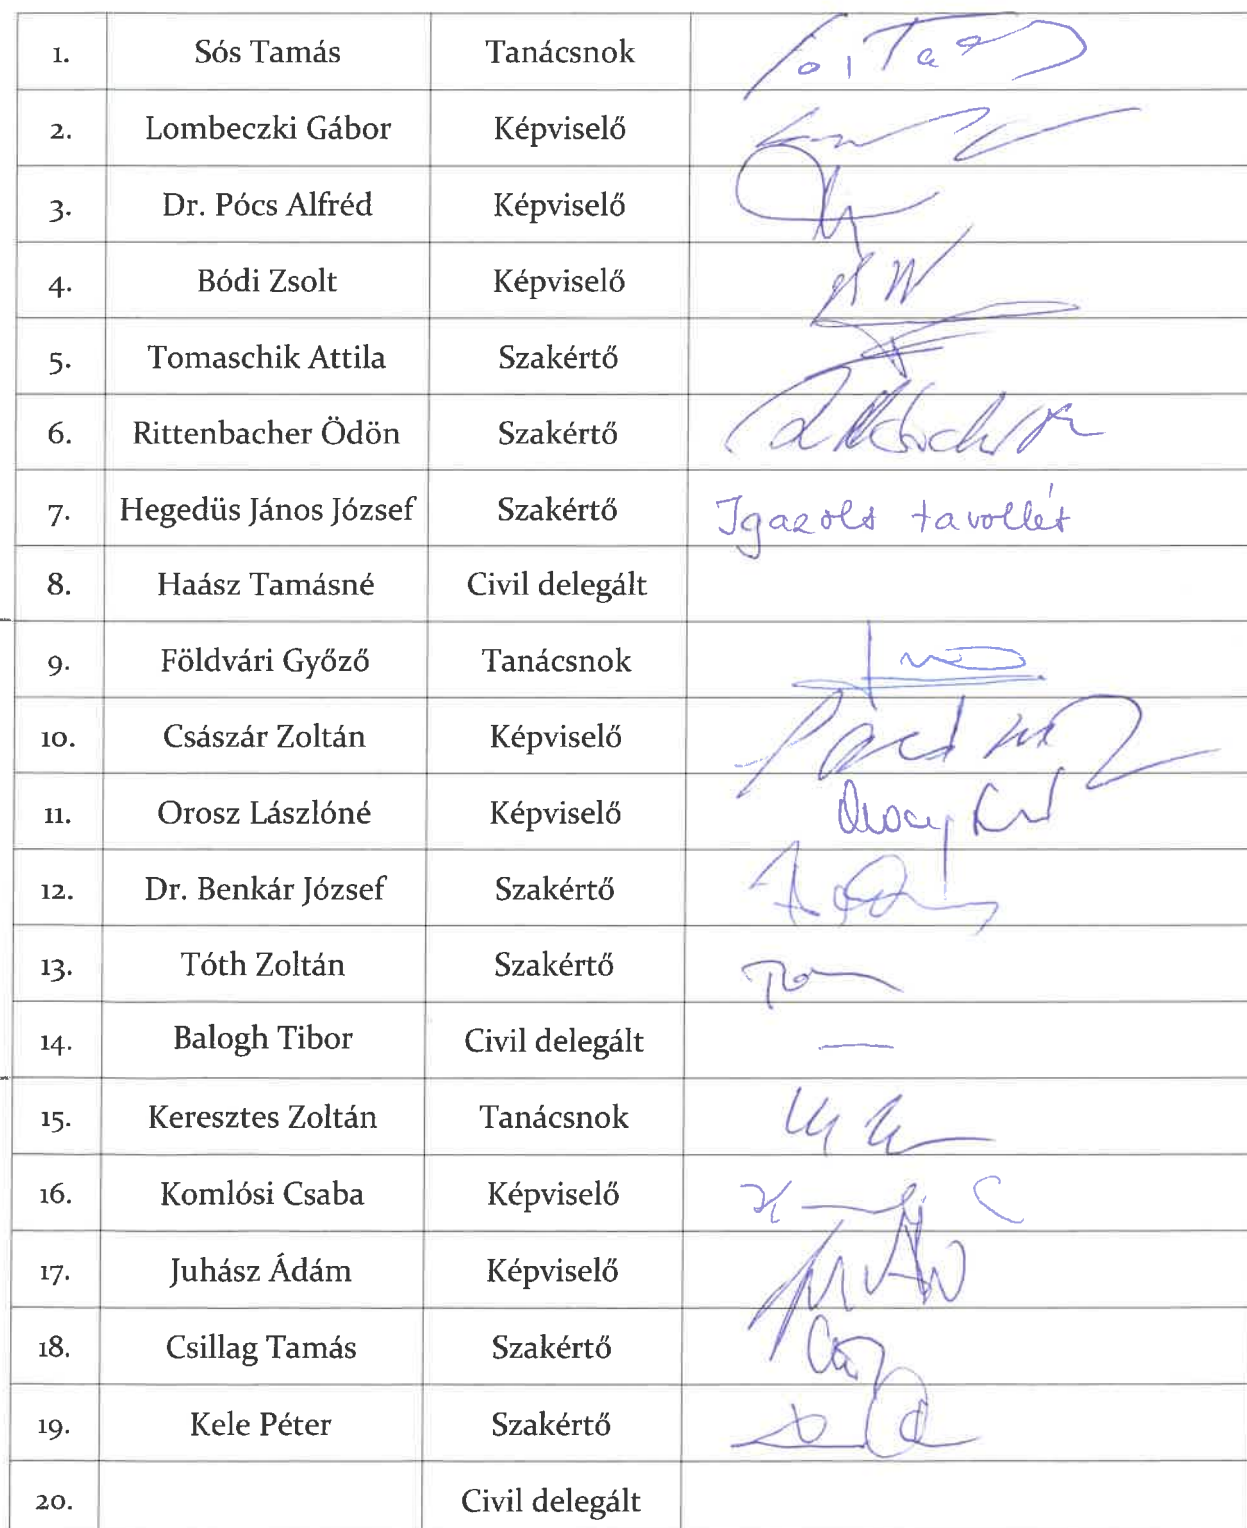 1. Sós Tamás Tanácsnok
2. Lombeczki Gábor Képviselő
3. Dr. Pócs Alfréd Képviselő
4. Bódi Zsolt Képviselő
5. Tomaschik Attila Szakértő
6. Rittenbacher Ödön Szakértő
7. Hegedüs János József Szakértő Igazolt távollét
8. Haász Tamásné Civil delegált
9. Földvári Győző Tanácsnok
10. Császár Zoltán Képviselő
11. Orosz Lászlóné Képviselő
12. Dr. Benkár József Szakértő
13. Tóth Zoltán Szakértő
14. Balogh Tibor Civil delegált —
15. Keresztes Zoltán Tanácsnok
16. Komlósi Csaba Képviselő
17. Juhász Ádám Képviselő
18. Csillag Tamás Szakértő
19. Kele Péter Szakértő
20. Civil delegált